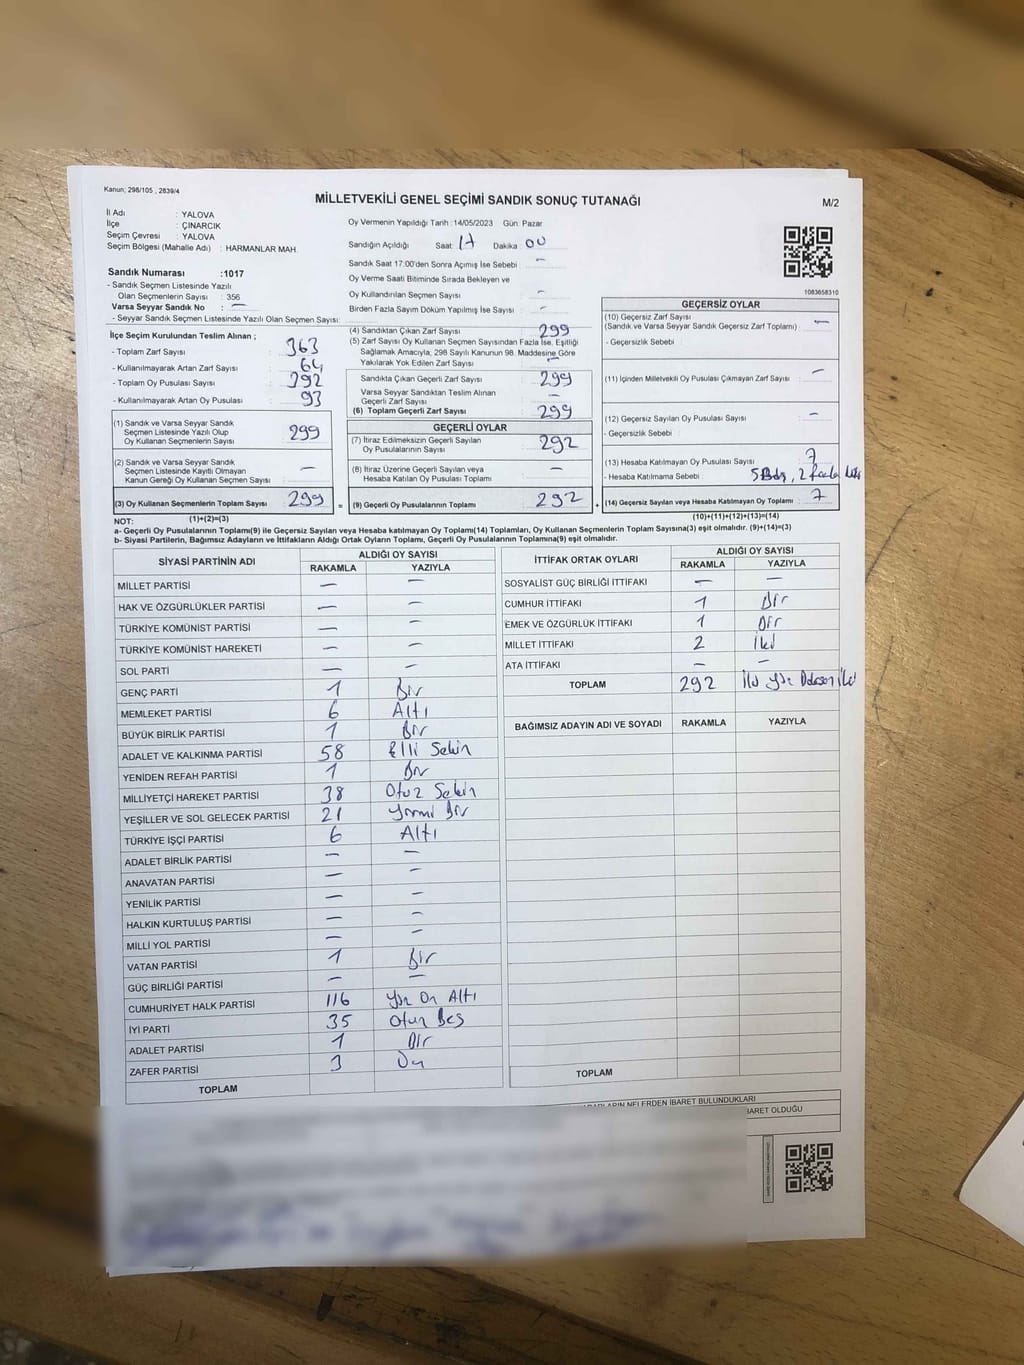 Kanun; 298/105 , 2839/4
MİLLETVEKİLİ GENEL SEÇİMİ SANDIK SONUÇ TUTANAĞI
M/2
İl Adı : YALOVA
İlçe : ÇINARCIK
Seçim Çevresi : YALOVA
Seçim Bölgesi (Mahalle Adı) : HARMANLAR MAH.
Oy Vermenin Yapıldığı Tarih :14/05/2023 Gün: Pazar
Sandığın Açıldığı Saat 17 Dakika 00
Sandık Saat 17:00'den Sonra Açımış İse Sebebi : -
Oy Verme Saati Bitiminde Sırada Bekleyen ve
Oy Kullandırılan Seçmen Sayısı : -
Birden Fazla Sayım Döküm Yapılmış İse Sayısı : -
1083658310
Sandık Numarası :1017
- Sandık Seçmen Listesinde Yazılı
Olan Seçmenlerin Sayısı : 356
Varsa Seyyar Sandık No : -
- Seyyar Sandık Seçmen Listesinde Yazılı Olan Seçmen Sayısı:
İlçe Seçim Kurulundan Teslim Alınan ;
- Toplam Zarf Sayısı : 363
- Kullanılmayarak Artan Zarf Sayısı : 64
- Toplam Oy Pusulası Sayısı : 392
- Kullanılmayarak Artan Oy Pusulası : 93
(1) Sandık ve Varsa Seyyar Sandık
Seçmen Listesinde Yazılı Olup
Oy Kullanan Seçmenlerin Sayısı : 299
(2) Sandık ve Varsa Seyyar Sandık
Seçmen Listesinde Kayıtlı Olmayan
Kanun Gereği Oy Kullanan Seçmen Sayısı : -
(3) Oy Kullanan Seçmenlerin Toplam Sayısı : 299
(1)+(2)=(3)
(4) Sandıktan Çıkan Zarf Sayısı : 299
(5) Zarf Sayısı Oy Kullanan Seçmen Sayısından Fazla İse, Eşitliği
Sağlamak Amacıyla, 298 Sayılı Kanunun 98. Maddesine Göre
Yakılarak Yok Edilen Zarf Sayısı : -
Sandıkta Çıkan Geçerli Zarf Sayısı : 299
Varsa Seyyar Sandıktan Teslim Alınan
Geçerli Zarf Sayısı : -
(6) Toplam Geçerli Zarf Sayısı : 299
GEÇERLİ OYLAR
(7) İtiraz Edilmeksizin Geçerli Sayılan
Oy Pusulalarının Sayısı : 292
(8) İtiraz Üzerine Geçerli Sayılan veya
Hesaba Katılan Oy Pusulası Toplamı : -
= (9) Geçerli Oy Pusulalarının Toplamı : 292
GEÇERSİZ OYLAR
(10) Geçersiz Zarf Sayısı
(Sandık ve Varsa Seyyar Sandık Geçersiz Zarf Toplamı) : -
- Geçersizlik Sebebi :
(11) İçinden Milletvekili Oy Pusulası Çıkmayan Zarf Sayısı : -
(12) Geçersiz Sayılan Oy Pusulası Sayısı : -
- Geçersizlik Sebebi :
(13) Hesaba Katılmayan Oy Pusulası Sayısı : 7
- Hesaba Katılmama Sebebi : 5 Boş, 2 fazla
+ (14) Geçersiz Sayılan veya Hesaba Katılmayan Oy Toplamı : 7
(10)+(11)+(12)+(13)=(14)
NOT:
a- Geçerli Oy Pusulalarının Toplamı(9) ile Geçersiz Sayılan veya Hesaba katılmayan Oy Toplamı(14) Toplamları, Oy Kullanan Seçmenlerin Toplam Sayısına(3) eşit olmalıdır. (9)+(14)=(3)
b- Siyasi Partilerin, Bağımsız Adayların ve İttifakların Aldığı Ortak Oyların Toplamı, Geçerli Oy Pusulalarının Toplamına(9) eşit olmalıdır.
SİYASİ PARTİNİN ADI ALDIĞI OY SAYISI
RAKAMLA YAZIYLA
MİLLET PARTİSİ - -
HAK VE ÖZGÜRLÜKLER PARTİSİ - -
TÜRKİYE KOMÜNİST PARTİSİ - -
TÜRKİYE KOMÜNİST HAREKETİ - -
SOL PARTİ - -
GENÇ PARTİ 1 Bir
MEMLEKET PARTİSİ 6 Altı
BÜYÜK BİRLİK PARTİSİ 1 Bir
ADALET VE KALKINMA PARTİSİ 58 Elli Sekiz
YENİDEN REFAH PARTİSİ 1 Bir
MİLLİYETÇİ HAREKET PARTİSİ 38 Otuz Sekiz
YEŞİLLER VE SOL GELECEK PARTİSİ 21 Yirmi Bir
TÜRKİYE İŞÇİ PARTİSİ 6 Altı
ADALET BİRLİK PARTİSİ - -
ANAVATAN PARTİSİ - -
YENİLİK PARTİSİ - -
HALKIN KURTULUŞ PARTİSİ - -
MİLLİ YOL PARTİSİ - -
VATAN PARTİSİ 1 Bir
GÜÇ BİRLİĞİ PARTİSİ - -
CUMHURİYET HALK PARTİSİ 116 Yüz On Altı
İYİ PARTİ 35 Otuz Beş
ADALET PARTİSİ 1 Bir
ZAFER PARTİSİ 3 Üç
TOPLAM
İTTİFAK ORTAK OYLARI ALDIĞI OY SAYISI
RAKAMLA YAZIYLA
SOSYALİST GÜÇ BİRLİĞİ İTTİFAKI - -
CUMHUR İTTİFAKI 1 Bir
EMEK VE ÖZGÜRLÜK İTTİFAKI 1 Bir
MİLLET İTTİFAKI 2 İki
ATA İTTİFAKI - -
TOPLAM 292 İki Yüz Doksan İki
BAĞIMSIZ ADAYIN ADI VE SOYADI RAKAMLA YAZIYLA
TOPLAM
NELERDEN İBARET BULUNDUKLARI
İBARET OLDUĞU